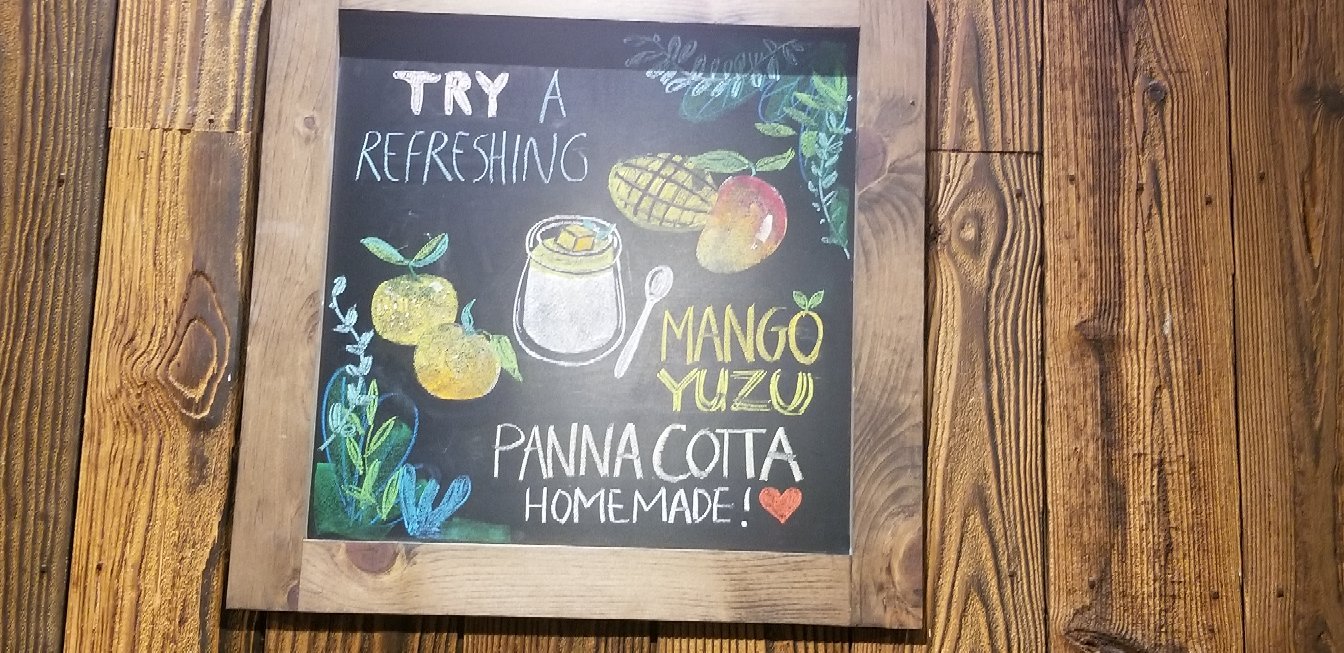 TRY A
REFRESHING
MANGO
YUZU
PANNA COTTA
HOMEMADE!